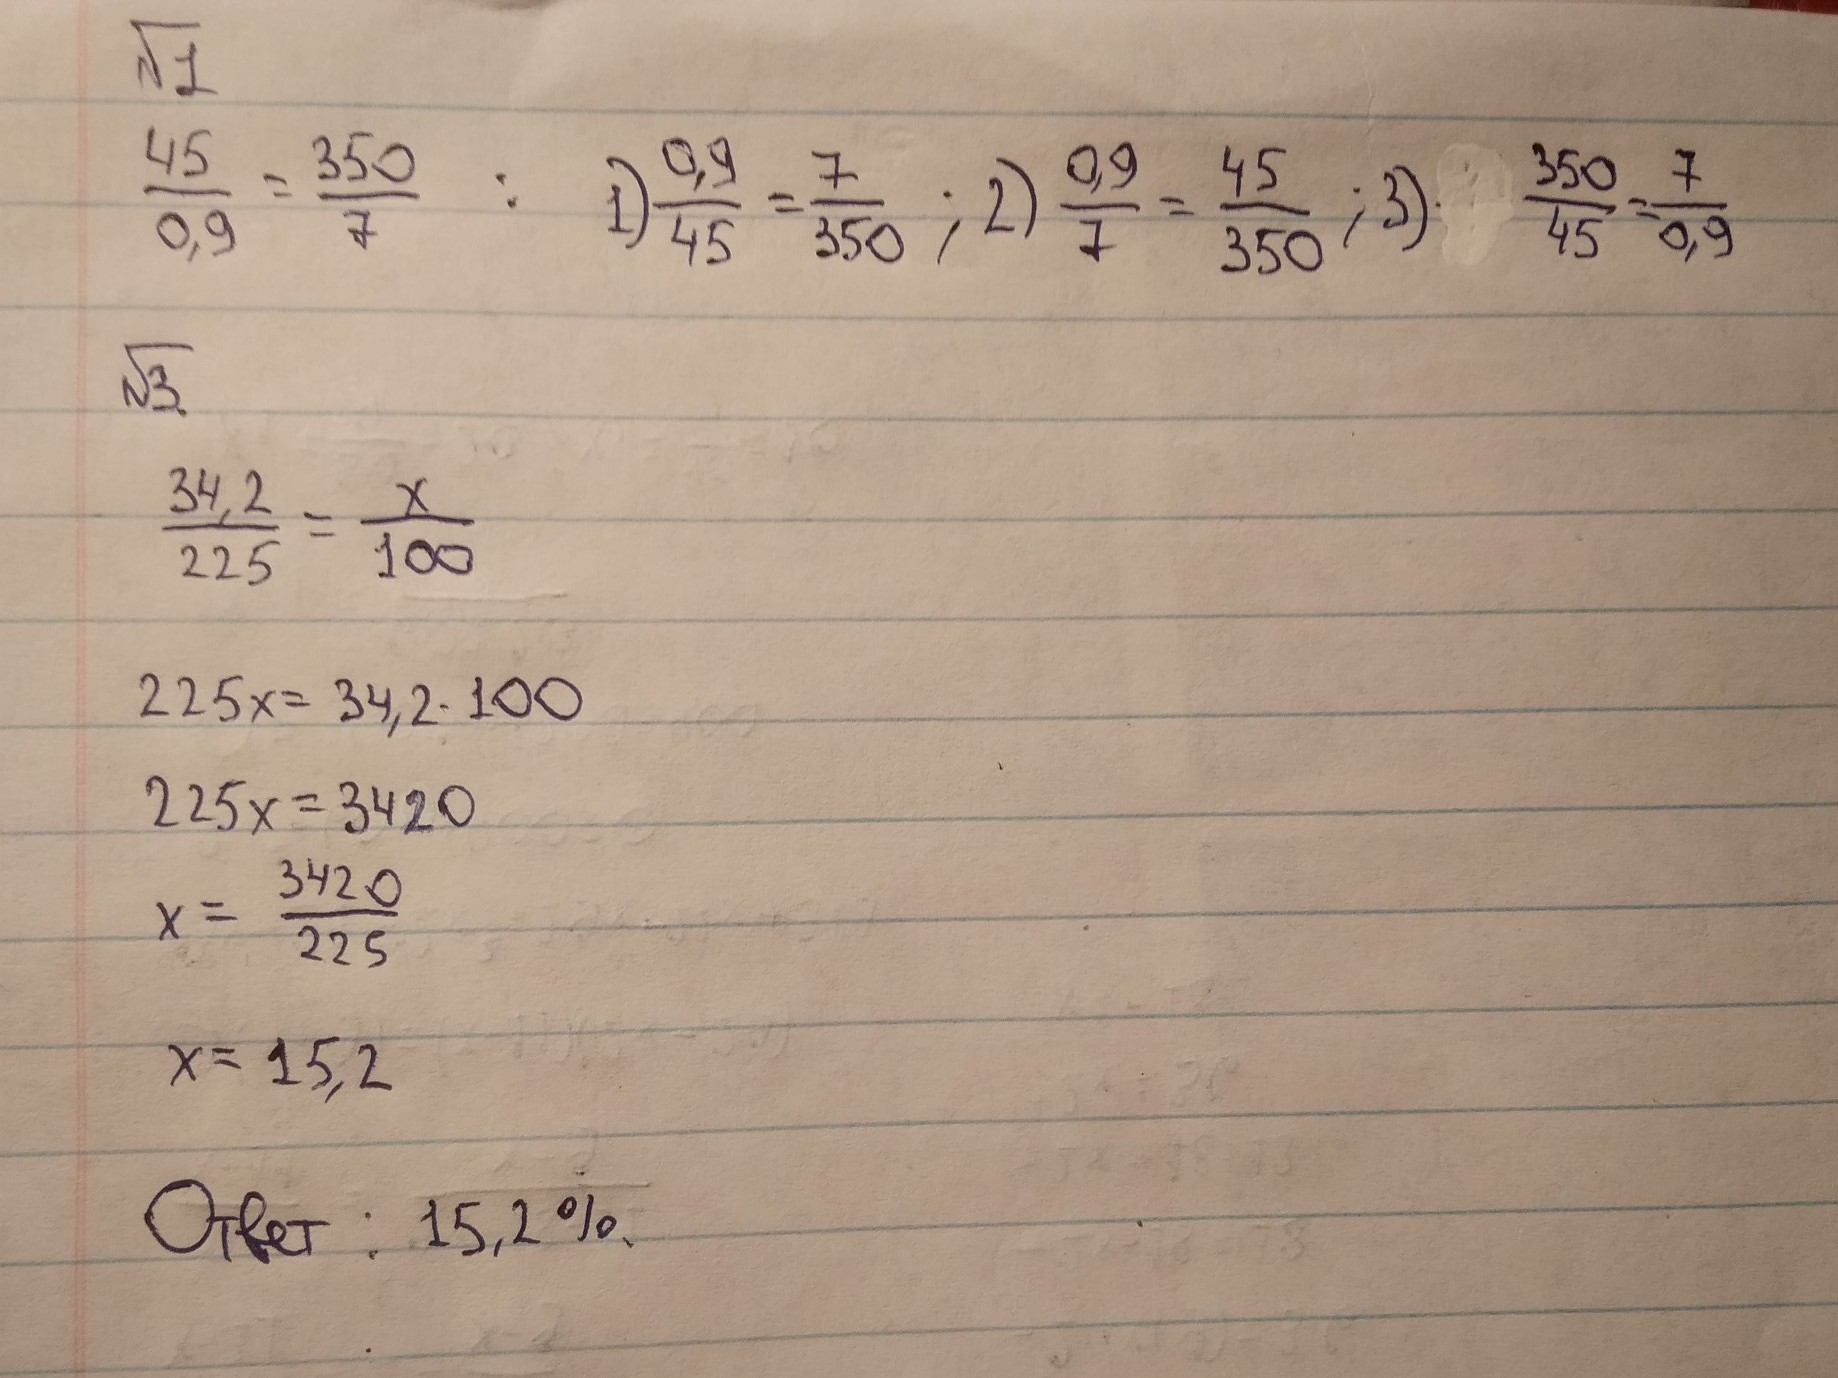 √1
45/0,9 = 350/7 : 1) 0,9/45 = 7/350 ; 2) 0,9/7 = 45/350 ; 3) 350/45 = 7/0,9
√3.
34,2/225 = x/100
225x = 34,2 · 100
225x = 3420
x = 3420/225
x = 15,2
Ответ : 15,2 %.